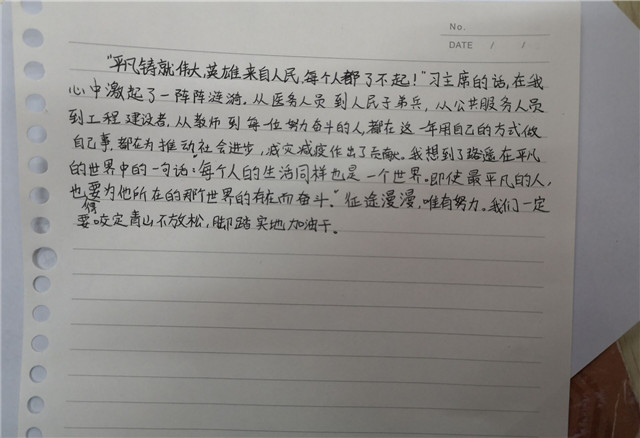 No.
DATE / /
"平凡铸就伟大,英雄来自人民,每个人都了不起!"习主席的话,在我
心中激起了一阵阵涟漪。从医务人员到人民子弟兵,从公共服务人员
到工程建设者,从教师到每一位努力奋斗的人,都在这一年用自己的方式做
自己事,都在为推动社会进步,减灾减疫作出了贡献。我想到了路遥在平凡
的世界中的一句话:"每个人的生活同样也是一个世界。即使最平凡的人,
也要为他所在的那个世界的存在而奋斗。"征途漫漫,唯有努力。我们一定
要像咬定青山不放松,脚踏实地加油干。